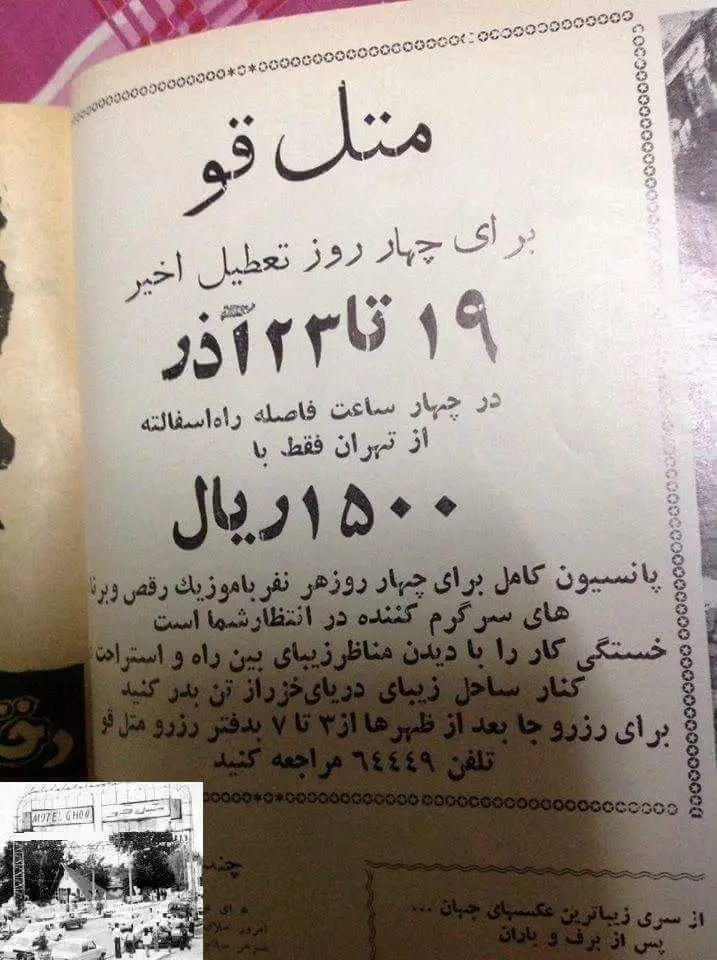 متل قو
برای چهار روز تعطیل اخیر
۱۹ تا ۲۳ آذر
در چهار ساعت فاصله راه اسفالته
از تهران فقط با
۱۵۰۰ ریال
پانسیون کامل برای چهار روز هر نفر با موزیك رقص و برنا
های سرگرم کننده در انتظار شما است
خستگی کار را با دیدن مناظر زیبای بین راه و استراحت
کنار ساحل زیبای دریای خزر از تن بدر کنید
برای رزرو جا بعد از ظهرها از ۳ تا ۷ بدفتر رزرو متل قو
تلفن ۶۴۴۴۹ مراجعه کنید
MOTEL GHOU متل قو
از سری زیباترین عکسهای جهان ...
پس از برف و باران